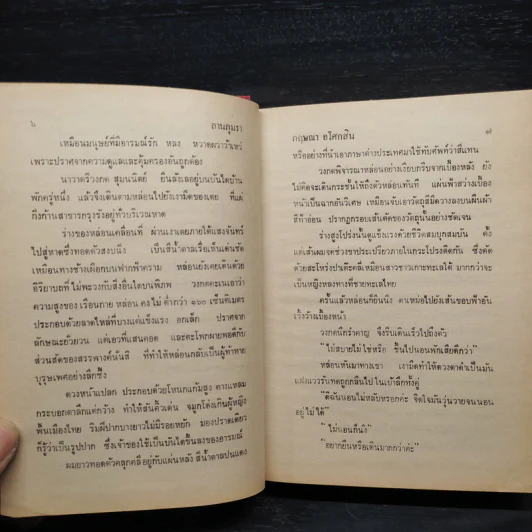 ๖ ลานภุมรา
เหมือนมนุษย์ที่มีอารมณ์รัก หลง หวาดผวาว้าเหว่
เพราะปราศจากความดูแลและคุ้มครองอันถูกต้อง
นาวาตรีวงกต สุมนนัติย์ ยืนลังเลอยู่บนบันไดบ้าน
พักครู่หนึ่ง แล้วจึงเดินตามหล่อนไปยังเงามืดของเตย ที่แผ่
กิ่งก้านสาขารกรุงรังอยู่ทั่วบริเวณหาด
ร่างของหล่อนเคลื่อนที่ ผ่านเงาเตยภายใต้แสงจันทร์
ไปสู่หาดซึ่งทอดตัวสงบนิ่ง เป็นสีน้ำตาลเรื่อเห็นเด่นชัด
เหมือนทางช้างเผือกบนฟากฟ้าคราม หล่อนยังคงเดินด้วย
อิริยาบถที่ไม่พะวงกับสิ่งอื่นใดบนพิภพ วงกตคะเนเอาว่า
ความสูงของเรือนกายหล่อนคงไม่ต่ำกว่า ๑๖๐ เซ็นติเมตร
ประกอบด้วยลาดไหล่ที่บางแต่แข็งแรง อกเล็ก ปราศจาก
ลักษณะยั่วยวน แต่เอวที่แสนคอด และตะโพกผายพอดีกับ
ส่วนสัดของสรรพางค์นั้นสิ ที่ทำให้หล่อนกลับเป็นผู้ท้าทาย
บุรุษเพศอย่างลึกซึ้ง
ดวงหน้าแปลก ประกอบด้วยโหนกแก้มสูง คางแหลม
กระบอกตาลึกแต่กว้าง ทำให้สันคิ้วเด่น จมูกโด่งเกินผู้หญิง
พื้นเมืองไทย ริมฝีปากบางยาวไม่มีรอยหยัก มองปราดเดียว
ก็รู้ว่าเป็นรูปปาก ซึ่งเจ้าของใช้เป็นบันไดขั้นลงของอารมณ์
ผมยาวทอดตัวคลุกคลีอยู่กับแผ่นหลัง สีน้ำตาลปนแดง
กฤษณา อโศกสิน ๗
หรืออย่างที่นำเอาภาษาต่างประเทศมาใช้ทับศัพท์ว่าสีแทน
วงกตพิจารณาหล่อนอย่างเงียบกริบจากเบื้องหลัง ยัง
ไม่คิดจะเดินกระชั้นให้ถึงตัวหล่อนทันที แผ่นฟ้าสว่างเบื้อง
หน้าเป็นฉากอันวิเศษ เหมือนจับเอาวัตถุสีมืดวางลงบนผืนผ้า
สีฟ้าอ่อน ปรากฏกรอบเส้นคัดของวัตถุนั้นอย่างชัดเจน
ร่างสูงโปร่งนั้นดูแข็งแรงด้วยชีวิตสมบุกสมบัน ตั้ง
แต่เส้นผมจดช่วงขาประเปรียวภายในกระโปรงติดกัน ซึ่งตัด
ด้วยสะโหร่งปาเต๊ะคลี่เหมือนสาวชาวเกาะทะเลใต้ มากกว่าจะ
เป็นหญิงหลงทางที่ชายทะเลไทย
ครั้นแล้วหล่อนก็ยืนนิ่ง ตาเหม่อไปยังเส้นขอบฟ้าอัน
เวิ้งว้างเบื้องหน้า
วงกตนึกรำคาญ จึงรีบเดินเร็วไปถึงตัว
“ไม่สบายไม่ใช่หรือ ขึ้นไปนอนพักเสียดีกว่า”
หล่อนหันมาทางเขา เงามืดทำให้ดวงตาดำเป็นมัน
แฝงแววรันทดถูกกลืนไปในเบ้าลึกทั้งคู่
“ดิฉันนอนไม่หลับหรอกค่ะ จิตใจมันวุ่นวายจนนอน
อยู่ไม่ได้”
“ไม่นอนก็นั่ง”
“อยากยืนหรือเดินมากกว่าค่ะ”